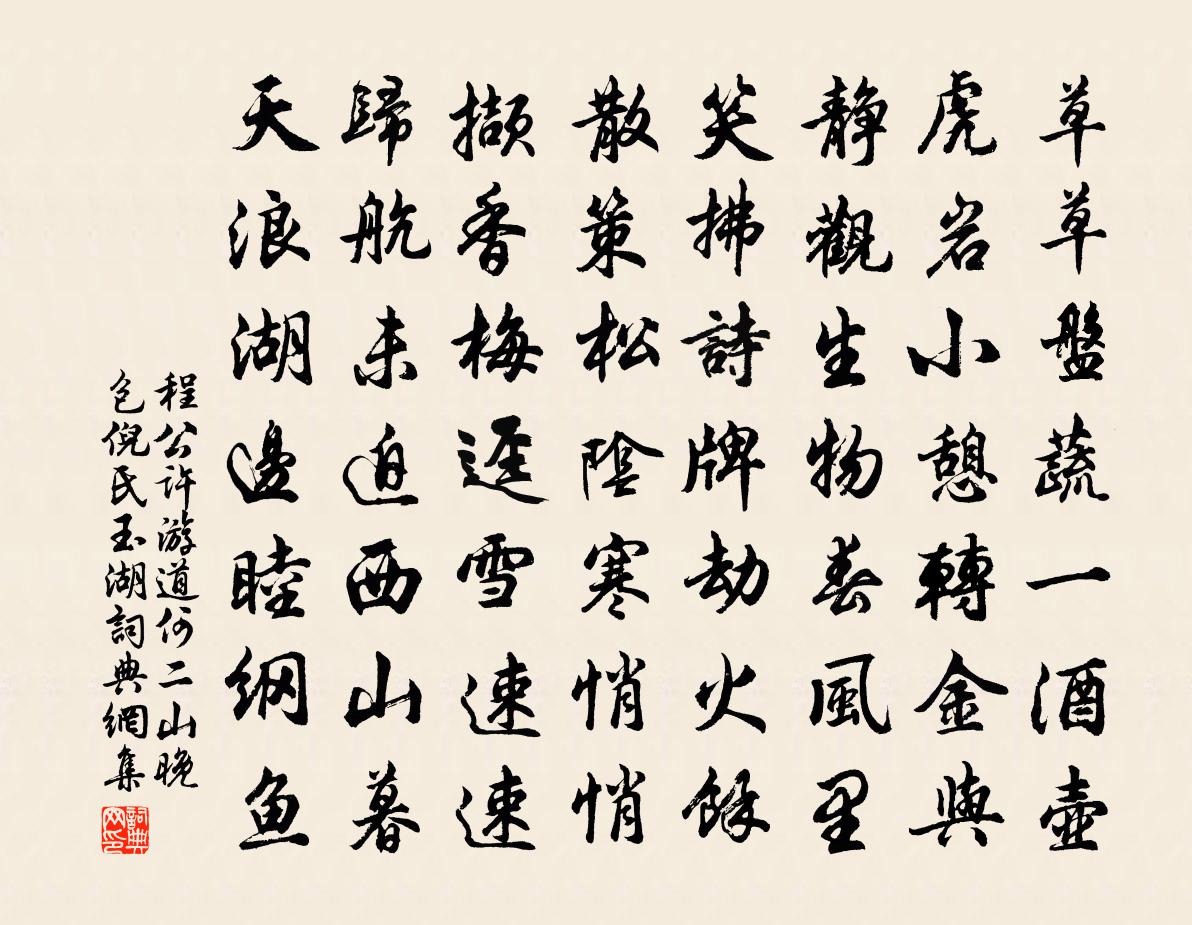 草草盤蔬一酒壺
虎岩小憩轉金輿
靜觀生物春風里
笑拂詩牌劫火餘
散策松陰寒悄悄
擷香梅逕雪速速
歸航未迫西山暮
天浪湖邊睦網魚
程公许游道何二山晚
包倪民玉湖詞典網集
詞典网印